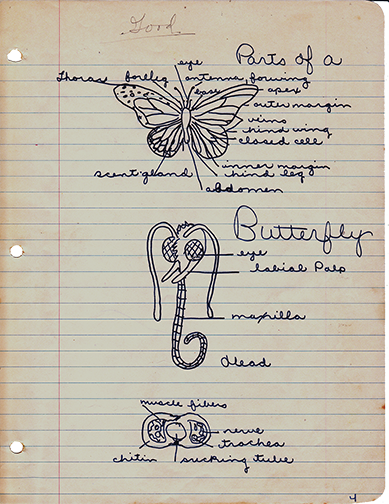 Good
eye
Parts of a
thorax foreleg antenna forewing
base apex
outer margin
veins
hind wing
closed cell
inner margin
scent gland hind leg
abdomen
Butterfly
eye
labial Palp
maxilla
Head
muscle fibers
nerve
trachea
chitin sucking tube
4